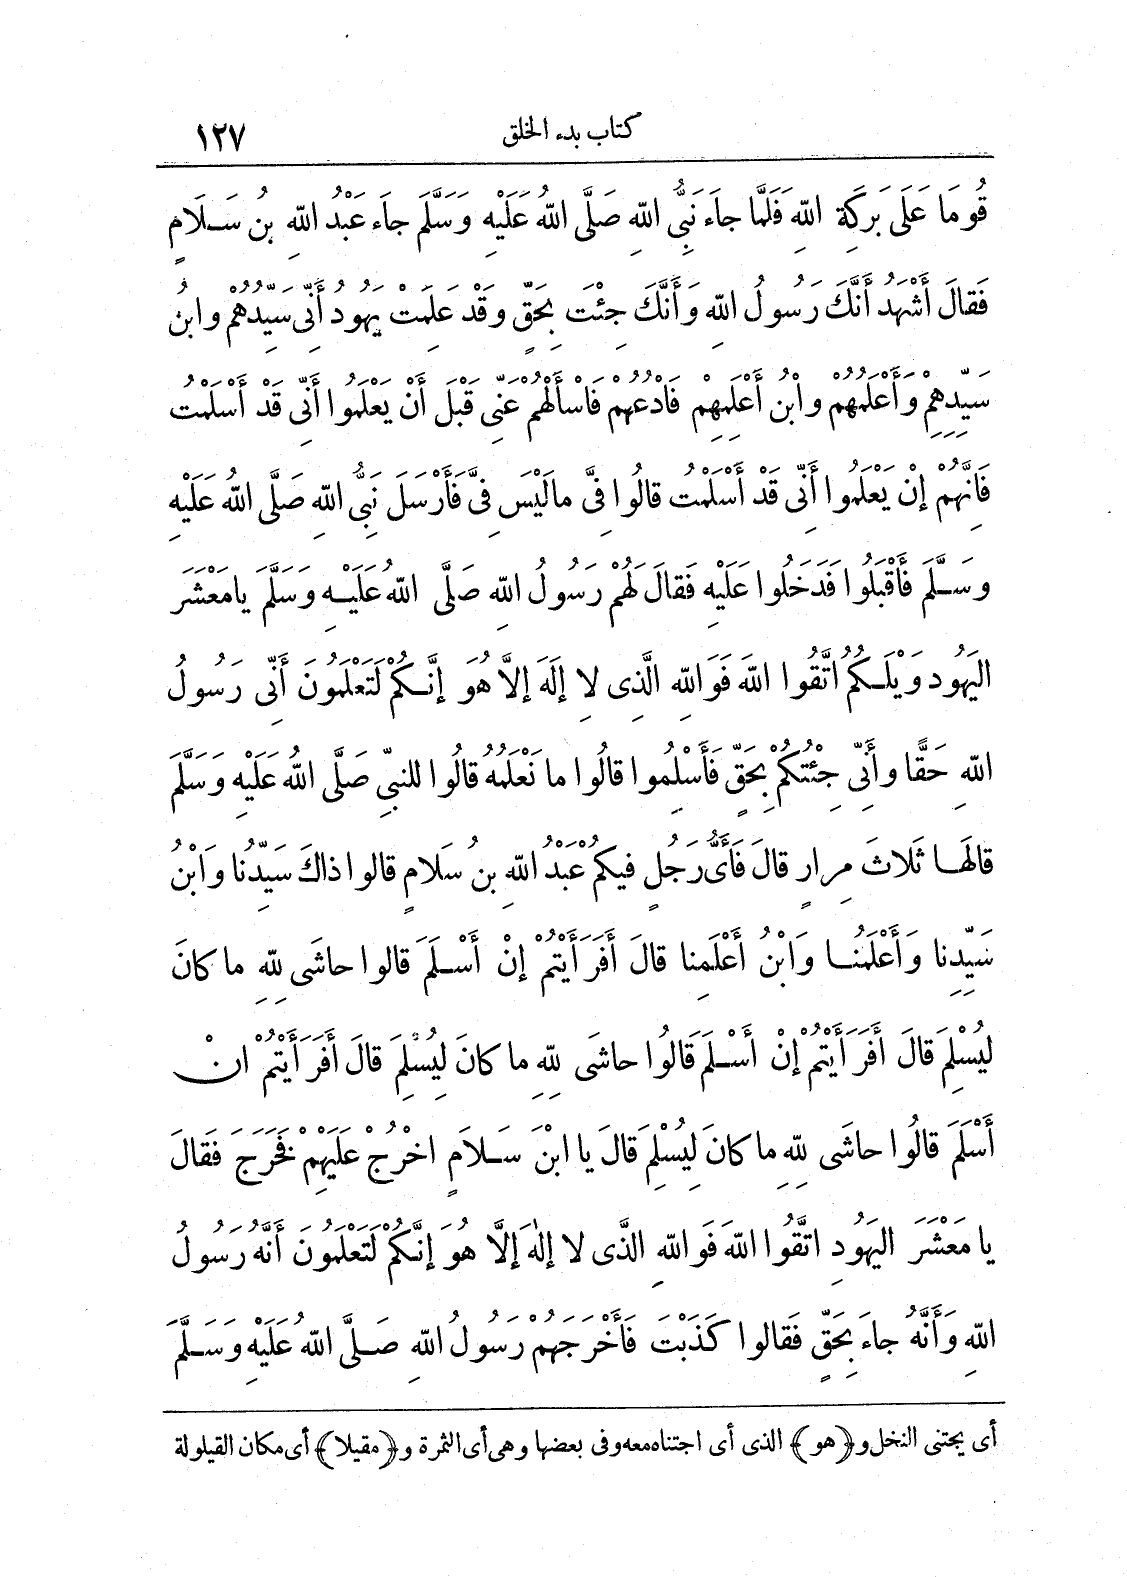 كتاب بدء الخلق ١٢٧
قُومَا عَلَى بَرَكَةِ اللّهِ فَلَمَّا جَاءَ نَبِىُّ اللّهِ صَلَّى اللّهُ عَلَيْهِ وَسَلَّمَ جاءَ عَبْدُ اللّهِ بنُ سَلَامٍ
فَقالَ أَشْهَدُ أَنَّكَ رَسُولُ اللّهِ وَأَنَّكَ جِئْتَ بِحَقٍّ وقَدْ عَلِمَتْ يَهُودُ أَنِّى سَيِّدُهُمْ وابنُ
سَيِّدِهِمْ وأَعْلَمُهُمْ وابْنُ أَعْلَمِهِمْ فَادْعُهُمْ فَاسْأَلْهُمْ عَنِّى قَبْلَ أَنْ يَعْلَمُوا أَنِّى قَدْ أَسْلَمْتُ
فَانَّهُمْ إنْ يَعْلَمُوا أَنِّى قَدْ أَسْلَمْتُ قالُوا فِىَّ مالَيْسَ فِىَّ فَأَرْسَلَ نَبِىُّ اللّهِ صَلَّى اللّهُ عَلَيْهِ
وسَلَّمَ فَأَقْبَلُوا فَدَخَلُوا عَلَيْهِ فَقالَ لَهُمْ رَسُولُ اللّهِ صَلَّى اللّهُ عَلَيْهِ وَسَلَّمَ يامَعْشَرَ
اليَهُود وَيْلَكُمُ اتَّقُوا اللّهَ فَوَاللّهِ الَّذِى لا إلَهَ إلَّا هُوَ إنَّكُمْ لَتَعْلَمُونَ أَنِّى رَسُولُ
اللّهِ حَقًّا وأَنِّى جِئْتُكُمْ بِحَقٍّ فَأَسْلِمُوا قالُوا ما نَعْلَمُهُ قالُوا للنبِيِّ صَلَّى اللّهُ عَلَيْهِ وَسَلَّمَ
قالَهَا ثَلاثَ مِرارٍ قالَ فَأَىُّ رَجُلٍ فيكُمْ عَبْدُ اللّهِ بنُ سَلَامٍ قالوا ذاكَ سَيِّدُنا وَابْنُ
سَيِّدِنا وَأَعْلَمُنا وَابْنُ أَعْلَمِنا قالَ أَفَرَأَيْتُمْ إنْ أَسْلَمَ قالوا حاشَى لِلّهِ ما كانَ
لِيُسْلِمَ قالَ أَفَرَأَيْتُمْ إنْ أَسْلَمَ قَالُوا حاشَى لِلّهِ ما كانَ لِيُسْلِمَ قالَ أَفَرَأَيْتُمْ انْ
أَسْلَمَ قَالُوا حاشَى لِلّهِ ما كانَ لِيُسْلِمَ قالَ يا ابْنَ سَلَامٍ اخْرُجْ عَلَيْهِمْ فَخَرَجَ فَقالَ
يا مَعْشَرَ اليَهُودِ اتَّقُوا اللّهَ فَوَاللّهِ الَّذى لا إلٰهَ إلَّا هُوَ إنَّكُمْ لَتَعْلَمُونَ أَنَّهُ رَسُولُ
اللّهِ وَأَنَّهُ جاءَ بِحَقٍّ فَقالوا كَذَبْتَ فَأَخْرَجَهُمْ رَسُولُ اللّهِ صَلَّى اللّهُ عَلَيْهِ وَسَلَّمَ
أى يجتنى النخل و﴿هو﴾ الذى أى اجتناه معه وفى بعضها وهى أى الثمرة و﴿مقيلا﴾ أى مكان القيلولة